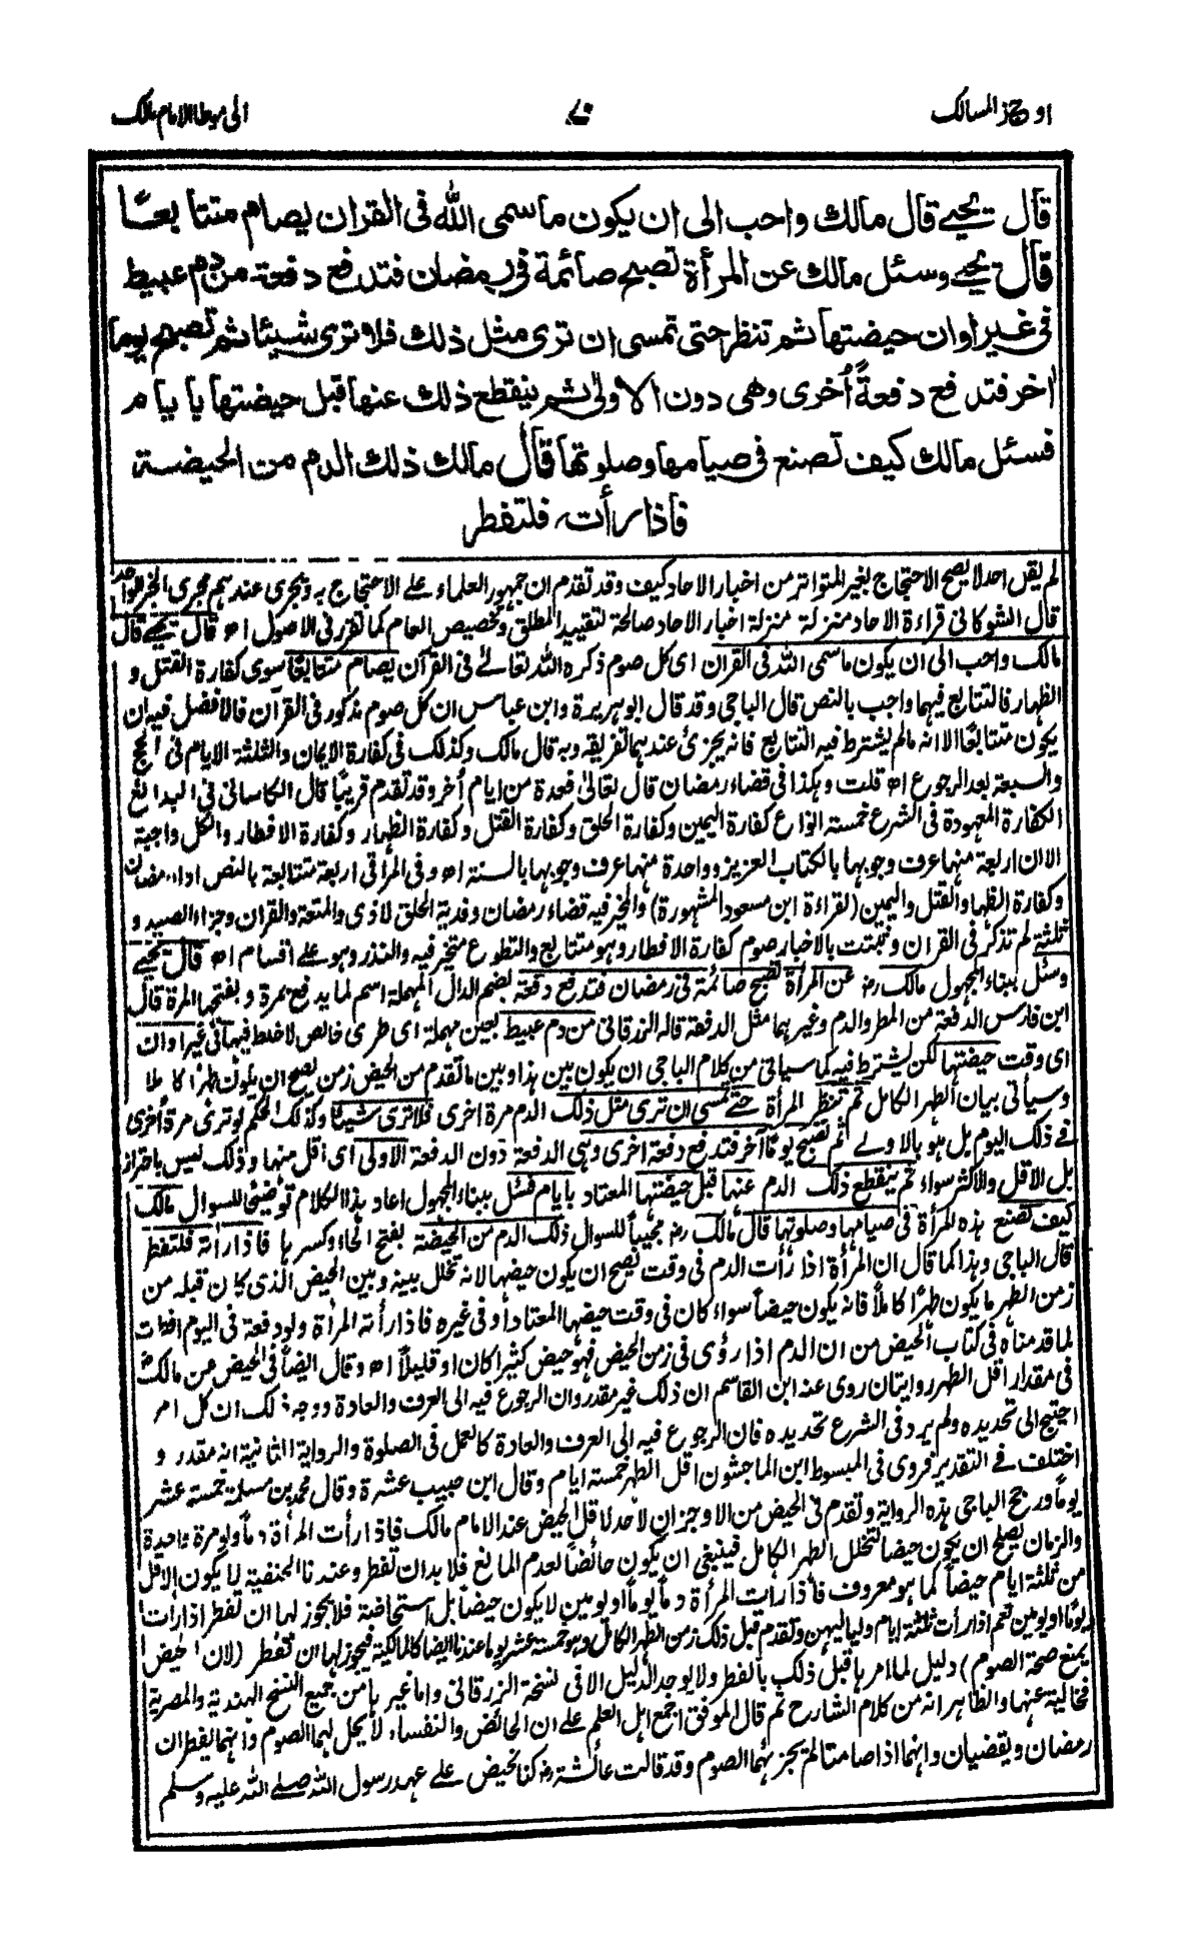 اوجز المسالك
٧٠
الى موطا الامام مالك
قال يحيى قال مالك واحب الى ان يكون ما سمى الله فى القران يصام متتابعًا
قال يحيى وسئل مالك عن المرأة تصبح صائمة فى رمضان فتدفع دفعة من دم عبيط
فى غير اوان حيضتها ثم تنظر حتى تمسى ان ترى مثل ذلك فلا ترى شيئا ثم تصبح يوما
اخر فتدفع دفعةً أخرى وهى دون الاولى ثم ينقطع ذلك عنها قبل حيضتها بايام
فسئل مالك كيف تصنع فى صيامها وصلوتها قال مالك ذلك الدم من الحيضة
فاذا رأته فلتفطر
لم يقل احد لا يصح الاحتجاج بغير المتواتر من اخبار الاحاد كيف وقد تقدم ان جمهور العلماء على الاحتجاج به ويجرى عندهم مجرى الخبر الواحد
قال الشوكانى قراءة الاحاد منزلة منزلة اخبار الاحاد صالحة لتقييد المطلق وتخصيص العام كما تقرر فى الاصول اه قال يحيى قال
مالك واحب الى ان يكون ما سمى الله فى القران اى كل صوم ذكره الله تعالى فى القرآن يصام متتابعًا سوى كفارة القتل و
الظهار فالتتابع فيهما واجب بالنص قال الباجى وقد قال ابو هريرة وابن عباس ان كل صوم مذكور فى القرآن فالافضل فيه ان
يكون متتابعًا الا انه ما لم يشترط فيه التتابع فانه يجزئ عندهما تفريقه وبه قال مالك وكذلك فى كفارة الايمان والثلثة الايام فى الحج
والسبعة بعد الرجوع اه قلت وهكذا فى قضاء رمضان قال تعالى فعدة من ايام أخر وقد تقدم قريبًا قال الكاسانى فى البدائع
الكفارة المعهودة فى الشرع خمسة انواع كفارة اليمين وكفارة الحلق وكفارة القتل وكفارة الظهار وكفارة الافطار والكل واجبة
الا ان اربعة منها عرف وجوبها بالكتاب العزيز وواحدة منها عرف وجوبها بالسنة اه وفى المراقى اربعة متتابعة بالنص اداء رمضان
وكفارة الظهار والقتل واليمين (لقراءة ابن مسعود المشهورة) والمخير فيه قضاء رمضان وفدية الحلق لاذى والمتعة والقران وجزاء الصيد و
ثلثة لم تذكر فى القران وثبتت بالاخبار صوم كفارة الافطار وهو متتابع والتطوع متخير فيه والنذر وهو على اقسام اه قال يحيى
وسئل ببناء المجهول مالك رض عن المرأة تصبح صائمة فى رمضان فتدفع دفعة بضم الدال المهملة اسم لما يدفع بمرة وبفتحها المرة قال
ابن فارس الدفعة من المطر والدم وغيرهما مثل الدفقة قاله الزرقانى من دم عبيط بعين مهملة اى طرى خالص لا خلط فيها فى غير اوان
اى وقت حيضتها لكن يشترط فيه كما سياتى من كلام الباجى ان يكون بين هذا وبين ما تقدم من الحيض زمن يصح ان يكون طهرًا كاملا
وسيأتى بيان الطهر الكامل ثم تنظر المرأة حتى تمسى ان ترى مثل ذلك الدم مرة اخرى فلا ترى شيئًا وكذلك الحكم لو ترى مرة أخرى
فى ذلك اليوم بل هو بالاولى ثم تصبح يومًا آخر فتدفع دفعة اخرى وهى الدفعة دون الدفعة الاولى اى اقل منها وذلك ليس باحتراز
بل الاقل والاكثر سواء ثم ينقطع ذلك الدم عنها قبل حيضتها المعتاد بايام فسئل ببناء المجهول اعاد بهذا الكلام توضيحًا للسوال مالك
كيف تصنع هذه المرأة فى صيامها وصلوتها قال مالك رض مجيبًا للسوال ذلك الدم من الحيضة بفتح الحاء وكسرها فاذا رأته فلتفطر
قال الباجى وهذا كما قال ان المرأة اذا رأت الدم فى وقت يصح ان يكون حيضها لانه تخلل بينه وبين الحيض الذى كان قبله من
زمن الطهر ما يكون طهرًا كاملًا فانه يكون حيضًا سواء كان فى وقت حيضها المعتاد أو فى غيره فاذا رأته المرأة ولو دفعة فى اليوم افطرت
لما قدمناه فى كتاب الحيض من ان الدم اذا رؤى فى زمن الحيض فهو حيض كثيرًا كان او قليلًا اه وقال ايضًا فى الحيض عن مالك
فى مقدار اقل الطهر روايتان روى عنه ابن القاسم ان ذلك غير مقدر وان الرجوع فيه الى العرف والعادة ووجه ذلك ان كل امر
احتيج الى تحديده ولم يرد فى الشرع تحديده فان الرجوع فيه الى العرف والعادة كالعمل فى الصلوة والرواية الثانية انه مقدر و
اختلف فى التقدير فروى فى المبسوط ابن الماجشون اقل الطهر خمسة ايام وقال ابن حبيب عشرة وقال محمد بن مسلمة خمسة عشر
يومًا ورجح الباجى هذه الرواية وتقدم فى الحيض من الاوجز ان لا حد لاقل الحيض عند الامام مالك فاذا رأت المرأة دمًا ولو مرة واحدة
والزمان يصلح ان يكون حيضا لتخلل الطهر الكامل فينبغى ان يكون حائضًا لعدم المانع فلا بد ان تفطر وعندنا الحنفية لا يكون الاقل
من ثلثة ايام حيضًا كما هو معروف فاذا رأت المرأة دمًا يومًا او يومين لا يكون حيضًا بل استحاضة فلا يجوز لها ان تفطر اذا رأت
يومًا او يومين نعم اذا رأت ثلثة ايام ولياليهن وتقدم قبل ذلك زمن الطهر الكامل وهو خمسة عشر يوما عندنا ايضا كالمالكية فيجوز لها ان تفطر (لان الحيض
يمنع صحة الصوم) دليل لما امرها قبل ذلك بالفطر ولا يوجد الدليل الا فى نسخة الزرقانى واما غيرها من جميع النسخ الهندية والمصرية
فخالية عنها والظاهر انه من كلام الشارح ثم قال الموفق اجمع اهل العلم على ان الحائض والنفساء لا يحل لهما الصوم وانهما يفطران
رمضان ويقضيان وانهما اذا صامتا لم يجزئهما الصوم وقد قالت عائشة رض كنا نحيض على عهد رسول الله صلى الله عليه وسلم